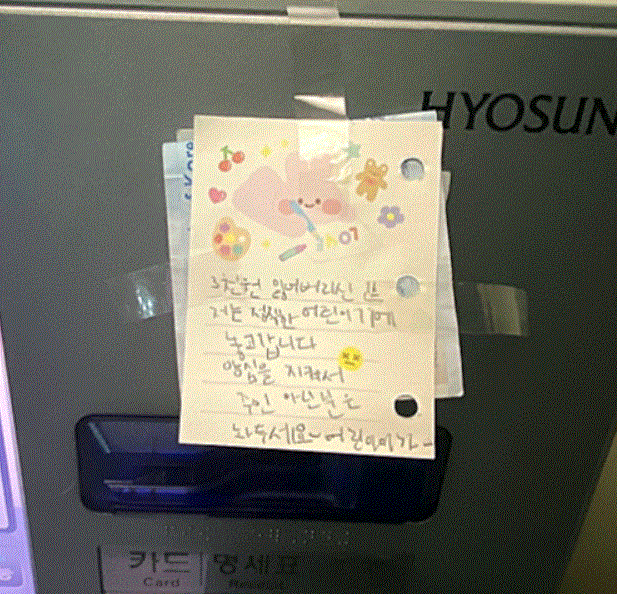 HYOSUN
07
3천원 잃어버리신 분
저는 정직한 어린이기에
놓고갑니다
양심을 지켜서
주인 아닌분은
놔두세요~어린이가-
카드 명세표
Card